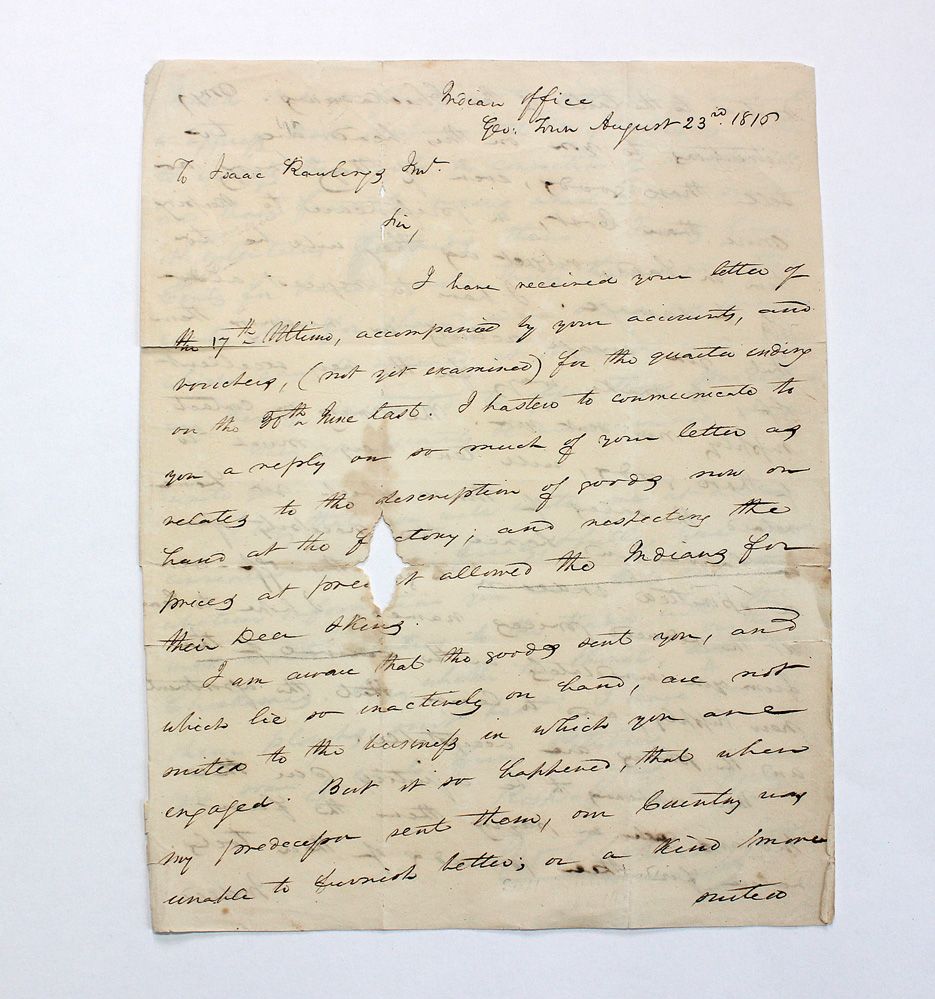 Indian Office
Geo: Town August 23rd. 1816
To Isaac Rawlings
Sir,
I have received your letter of
the 17th Ultimo, accompanied by your accounts, and
vouchers, (not yet examined) for the quarter ending
on the 30th June last. I hasten to communicate to
you a reply on so much of your letter as
relates to the description of goods now on
hand at the f ctory; and respecting the
prices at pre t allowed the Indians for
their Deer Skins
I am aware that the goods sent you, and
which lie so inactively on hand, are not
suited to the business in which you are
engaged. But it so happened, that when
my predecessor sent them, our Country was
unable to furnish better; or a kind more
suited